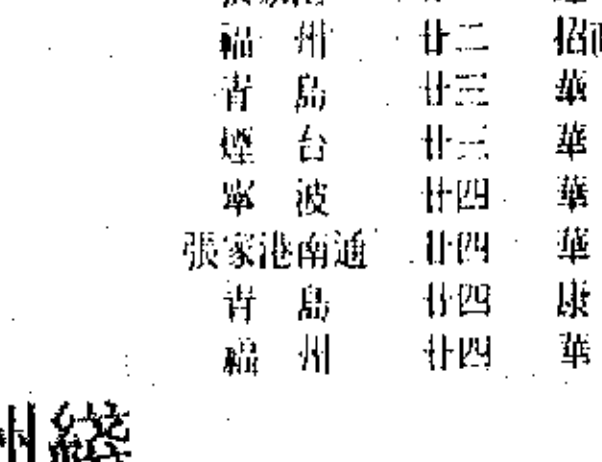 福州 廿二 招
青島 廿三 華
煙台 廿三 華
寧波 廿四 華
張家港南通 廿四 華
青島 廿四 康
福州 廿四 華
州綫